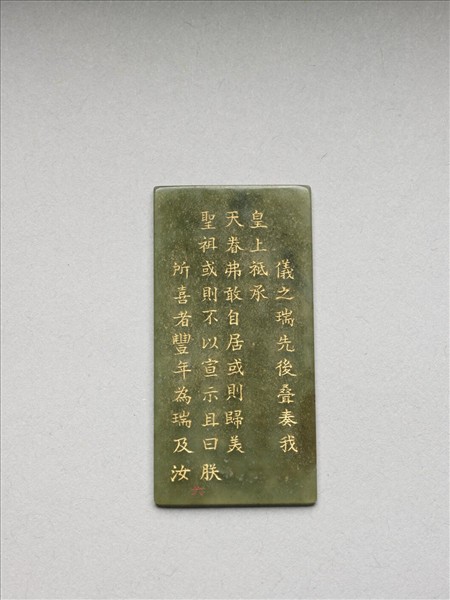 儀之瑞先後疊奏我
皇上祗承
天眷弗敢自居或則歸美
聖祖或則不以宣示且曰朕
所喜者豐年為瑞及汝